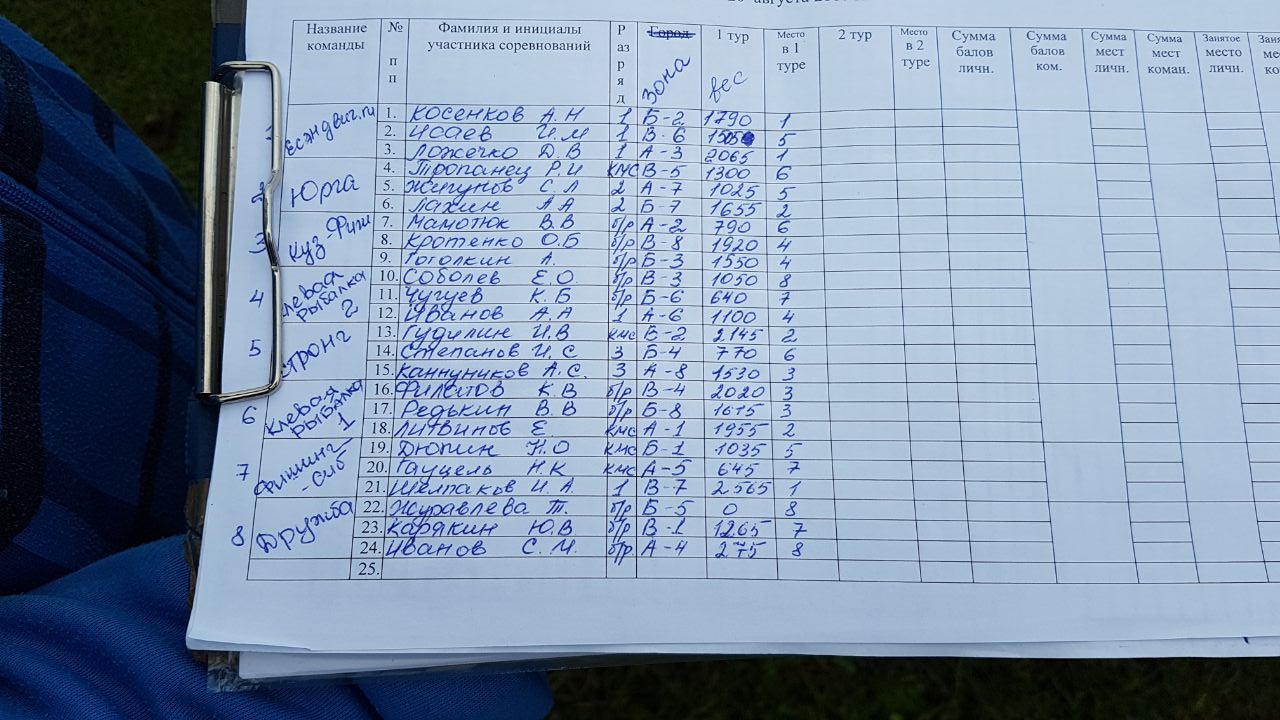 августа
Название команды № пп Фамилия и инициалы участника соревнований Разряд Город зона 1 тур вес Место в 1 туре 2 тур Место в 2 туре Сумма балов личн. Сумма балов ком. Сумма мест личн. Сумма мест коман. Занятое место личн.
1. Косенков А.Н 1 Б-2 1790 1
1 2. Исаев И.М 1 В-6 1505 5
3. Ложечко Д.В 1 А-3 2065 1
4. Тропанец Р.И КМС В-5 1300 6
2 Юрга 5. Жигунов С.Л 2 А-7 1025 5
6. Лахин А.А 2 Б-7 1655 2
7. Мамотюк В.В б/р А-2 790 6
3 Куз Фиш 8. Кротенко О.Б б/р В-8 1920 4
9. Гоголкин А. б/р Б-3 1550 4
10. Соболев Е.О. б/р В-3 1050 8
4 Клевая рыбалка 2 11. Чугуев К.Б б/р Б-6 640 7
12. Иванов А.А 1 А-6 1100 4
13. Гудилин И.В кмс В-2 2145 2
5 Стронг 14. Степанов И.С 3 Б-4 770 6
15. Каннуников А.С. 3 А-8 1530 3
16. К.В б/р В-4 2020 3
6 Клевая рыбалка 1 17. Редькин В.В б/р Б-8 1615 3
18. Литвинов Е. кмс А-1 1955 2
19. Дюпин Н.О кмс Б-1 1035 5
7 Фишинг-Сиб 20. Гауцель Н.К кмс А-5 645 7
21. Шелпаков И.А. 1 В-7 2565 1
22. Журавлева Т. б/р Б-5 0 8
8 Дружба 23. Карякин Ю.В. б/р В-1 1265 7
24. Иванов С.М. б/р А-4 275 8
25.